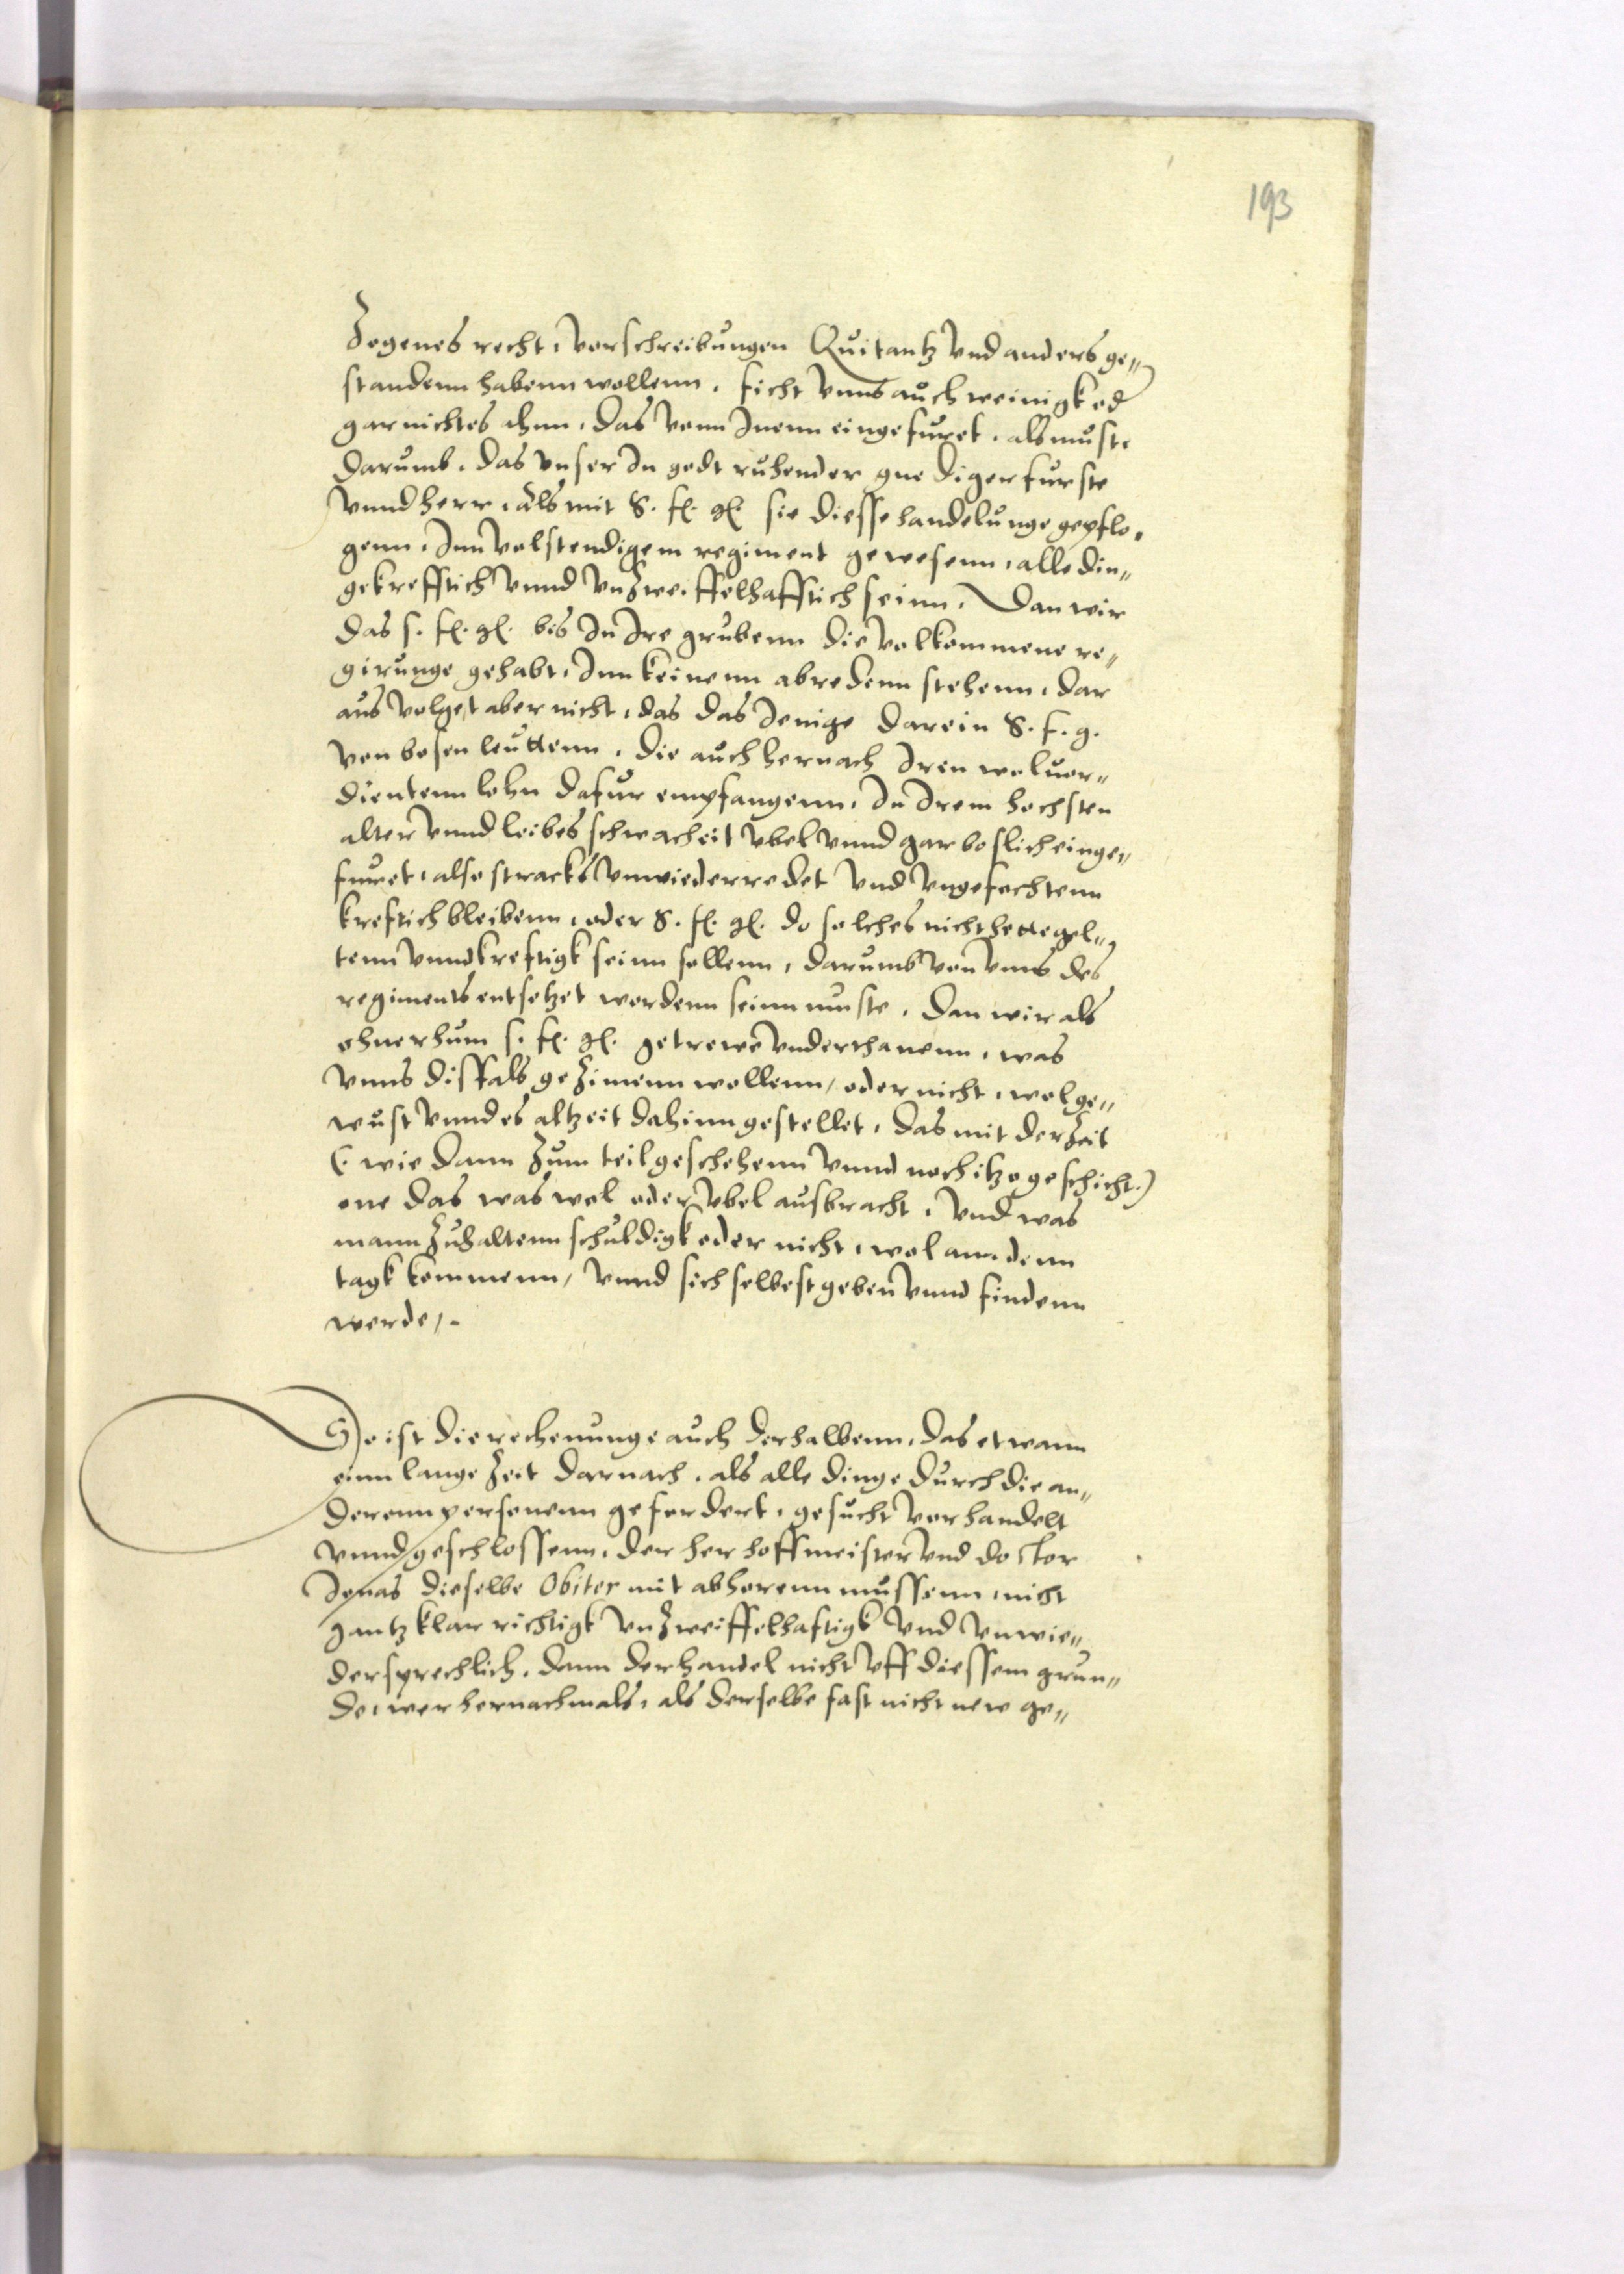 193
Zogenes recht, vorschreibungen Quitantz vnd anders ge„
standenn habenn wollenn. ficht vnns auch weinigk od
gar nichtes ahnn, das vonn Inenn eingefuret, als muste
darumb, das vnser In godt ruhender gnediger furste
vnnd herr, als mit S. f. g. sie diesse handelunge gepflo„
genn, Inn volstendigem regiment gewesenn, alle din„
ge krefftich vnnd vnzweiffelhafftich seinn. Dan wir
das s. f. g. bis In Ire grubenn die volkommene re„
girunge gehabt, Inn keinenn abredenn stehenn, dar
aus volget aber nicht, das das Jenige darein S. f. g.
von bosen leuttenn, die auch hernach Iren woluor„
dientenn lohn dafur empfangenn, In Irem hochsten
alter vnnd leibes schwacheit vbel vnnd gar boslich einge„
furet, also stracks vnwiederredet vnd vngefochtenn
kreftich bleibenn, oder S. f. g. do solches nicht hette gel„
tenn vnnd kreftigk seinn sollenn, darumb von vnns des
regiments entsetzet wordenn seinn muste. Dan wir als
ohne rhum s. f. g. getrewe vnderthanenn, was
vnns disfals gezimenn wollenn, oder nicht, wol ge„
wust vnnd es altzeit dahinn gestellet, das mit der Zeit
(. wie dann zum teil geschehenn vnnd noch itzo geschicht.)
one das was wol oder vbel ausbracht, vnd was
mann zuhaltenn schuldigk oder nicht, wol ann denn
tagk kommenn, vnnd sich selbest geben vnnd findenn
werde,.
So ist die rechenunge auch derhalbenn, das etwann
einn lange Zeit darnach, als alle dinge durch die an„
derenn personenn gefordert, gesucht vorhandelt
vnnd geschlossenn, der her hoffmeister vnd doctor
Jonas dieselbe Obiter mit abhorenn mussenn, nicht
gantz klar richtigk vnzweiffelhaftigk vnd vnwie„
dersprechlich, dann der handel nicht vff diessem grun„
de, wer hernachmals, als derselbe fast nicht new ge„